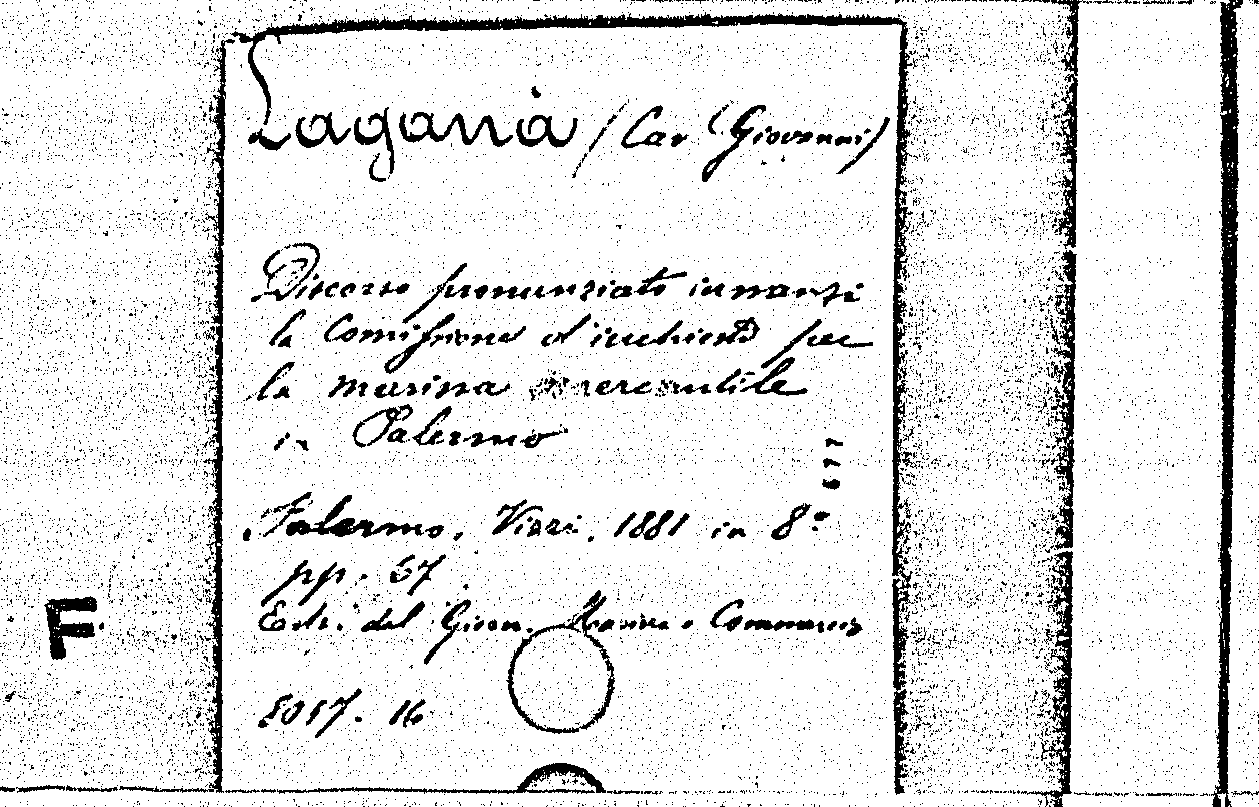 Laganà / Cav (Giovanni)
Discorso pronunziato innanzi
la Comissione d'inchiesta per
la marina mercantile
in Palermo
Palermo. Virzi. 1881 in 8º
pp. 57
Estr. del Giorn. Marina e Commercio
677
F